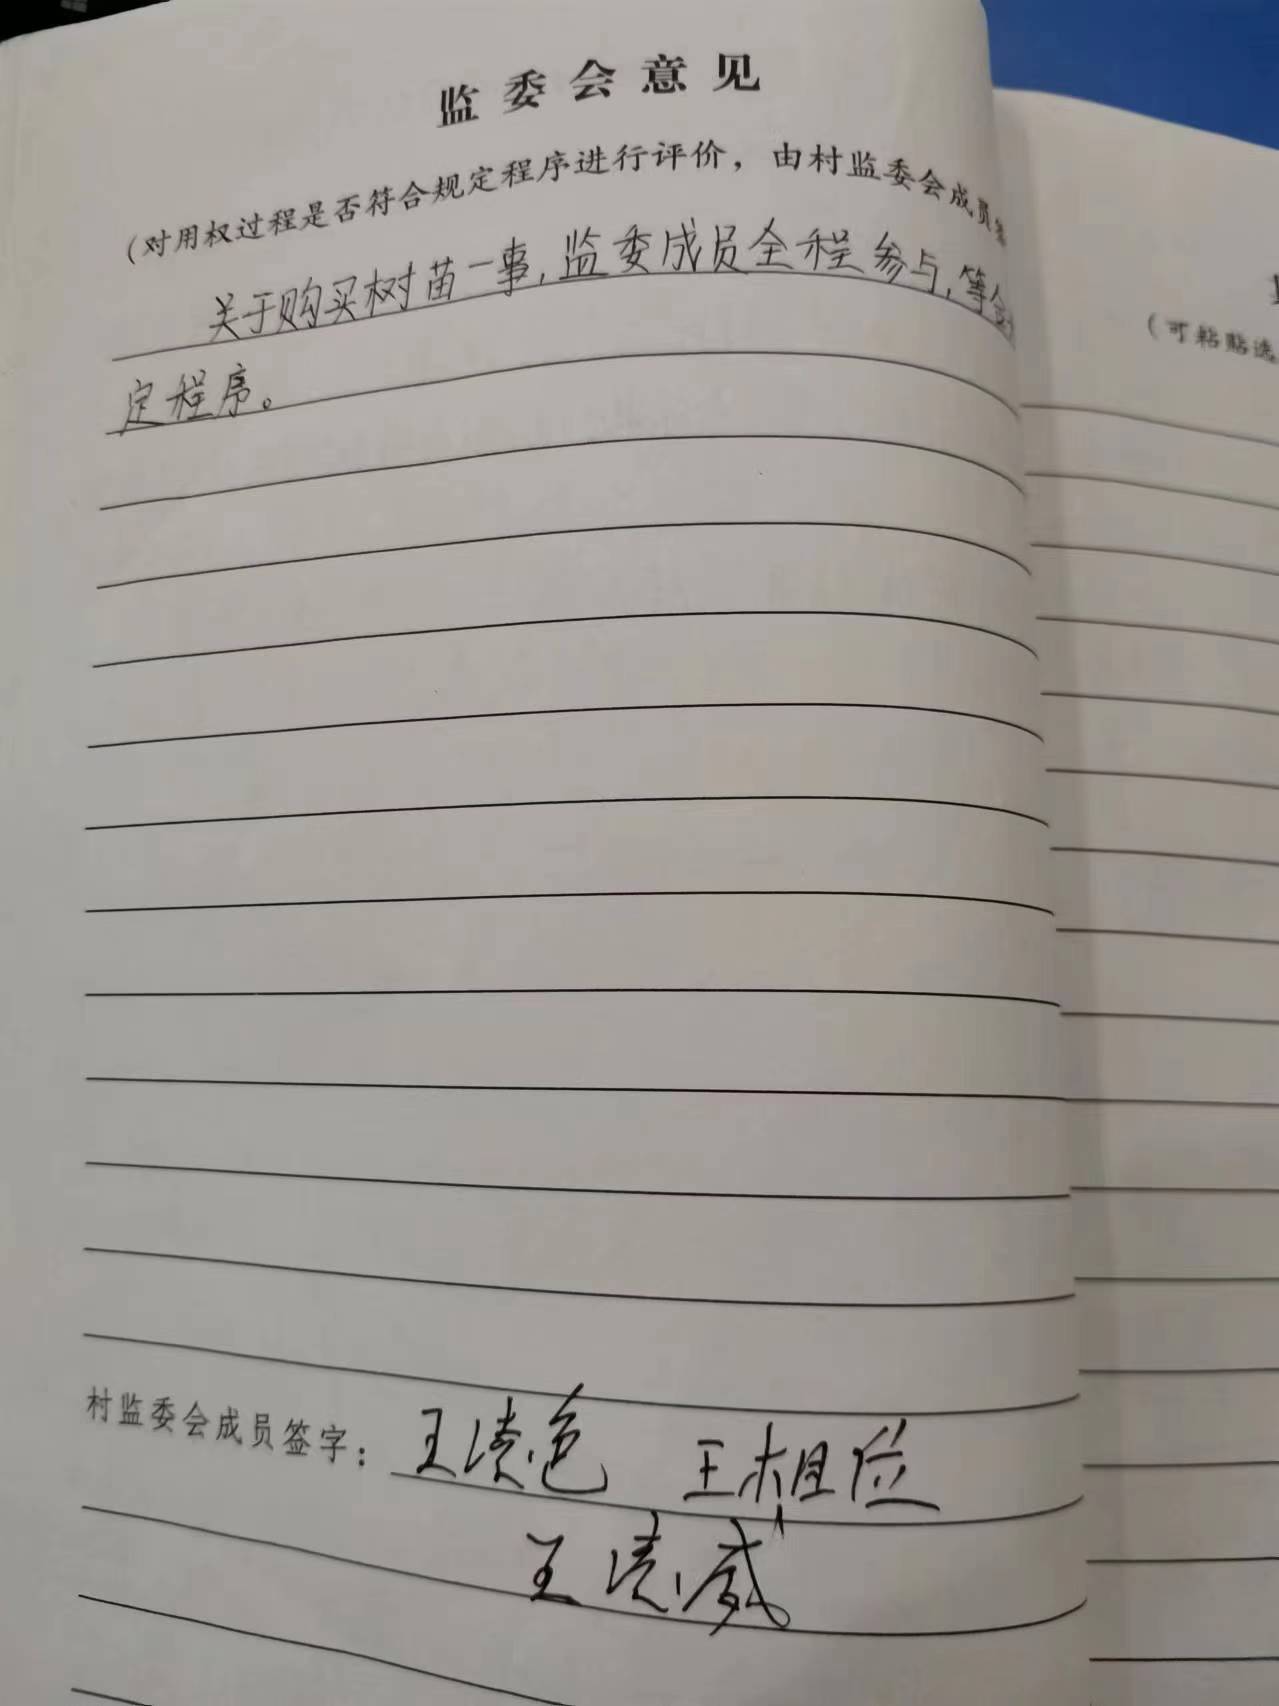 监委会意见
（对用权过程是否符合规定程序进行评价，由村监委会成员签
关于购买树苗一事，监委成员全程参与，符合规
定程序。
村监委会成员签字：王 王相位
王 威
（可粘贴选